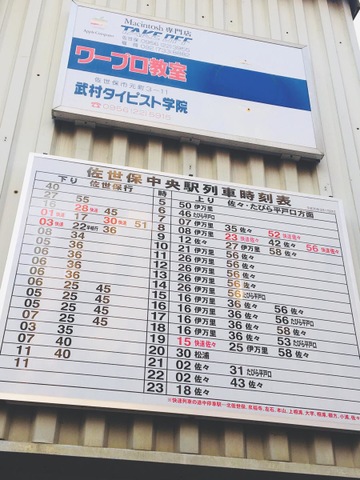 Macintosh 専門店
TAKE OFF
ワープロ教室
武村タイピスト学院
佐世保中央駅列車時刻表
下り 佐世保行 時 上り 佐々・たびら平戸口方面
40 5 50 伊万里
27 55 6 46 たびら平戸口
16 28 快速 45 7 07 伊万里
01 快速 17 8 08 伊万里 35 佐々 52 快速佐々
03 快速 22 51 9 12 佐々 23 快速佐々 42 佐々
08 34 10 21 伊万里 27 佐々 56 快速佐々
06 36 11 26 伊万里 56 佐々
06 36 12 26 伊万里 56 佐々
06 36 13 26 伊万里 56 佐々
06 36 14 26 伊万里 56 たびら平戸口
06 25 45 15 16 伊万里 36 佐々 56 佐々
05 25 45 16 16 伊万里 36 佐々 56 たびら平戸口
05 25 45 17 16 伊万里 36 佐々 58 佐々
07 25 45 18 16 伊万里 36 佐々 53 たびら平戸口
03 35 19 15 快速佐々 25 伊万里 58 佐々
07 40 20 30 松浦
11 40 21 02 佐々 31 たびら平戸口
11 22 02 佐々 43 佐々
23 18 佐々